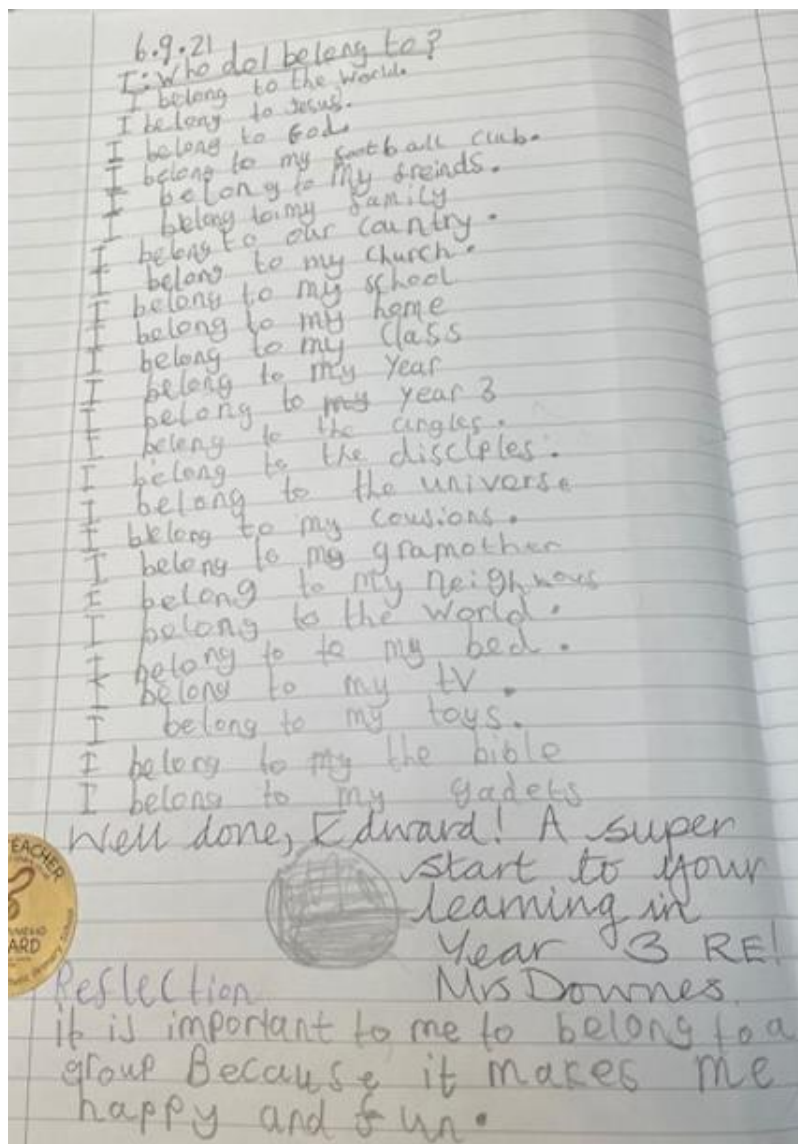 6.9.21
I: Who do I belong to?
I belong to the world.
I belong to Jesus.
I belong to God.
I belong to my football club.
I belong to my freinds.
I belong to my family
I belong to our country.
I belong to my church.
I belong to my school
I belong to my home
I belong to my class
I belong to my Year
I belong to my year 3
I belong to the angles.
I belong to the disciples.
I belong to the universe
I belong to my cousions.
I belong to my gramother
I belong to my
I belong to the world.
I belong to to my bed.
I belong to my tv.
I belong to my toys.
I belong to my the bible
I belong to my gadets
Well done, Edward! A super
start to your
learning in
Year 3 RE!
Mrs Downes
TEACHER
ARD
Reflection
it is important to me to belong to a
group Because it makes me
happy and fun.